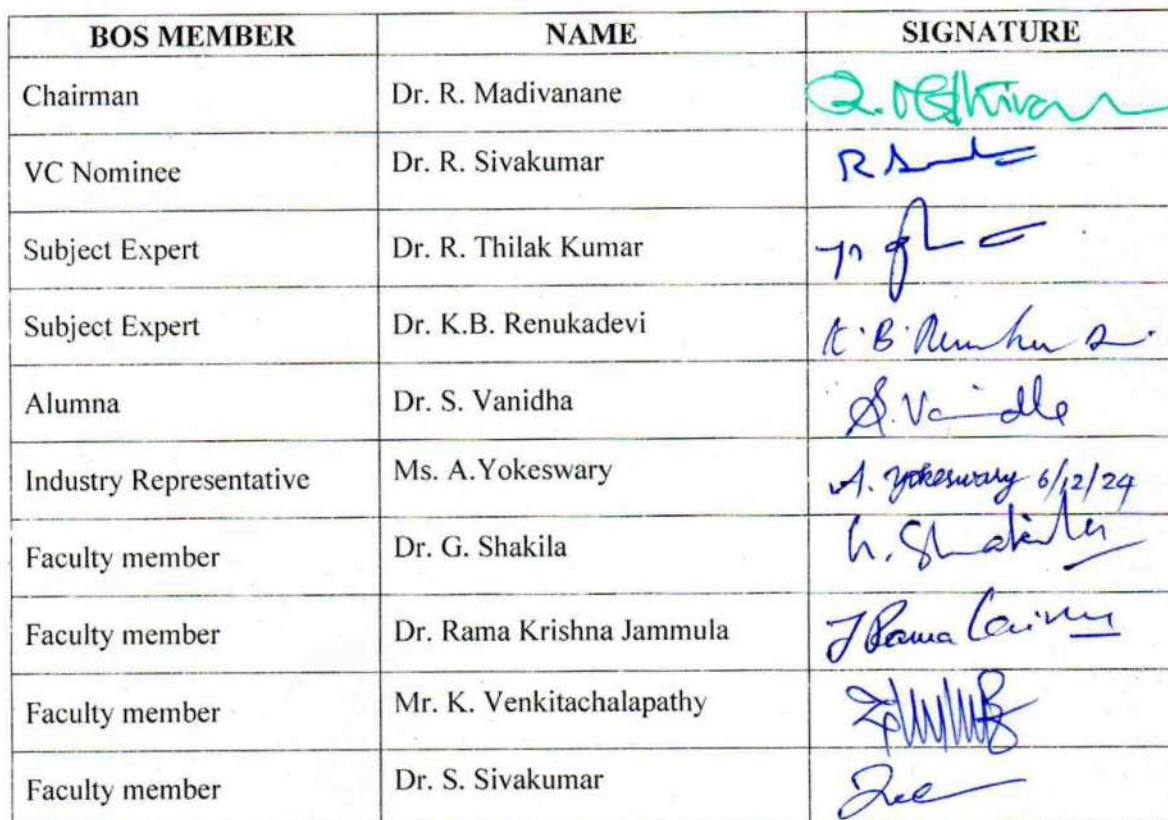 BOS MEMBER NAME SIGNATURE
Chairman Dr. R. Madivanane
VC Nominee Dr. R. Sivakumar
Subject Expert Dr. R. Thilak Kumar
Subject Expert Dr. K.B. Renukadevi K. B.
Alumna Dr. S. Vanidha S. Vanidha
Industry Representative Ms. A.Yokeswary A. Yokeswary 6/12/24
Faculty member Dr. G. Shakila G. Shakila
Faculty member Dr. Rama Krishna Jammula J Rama
Faculty member Mr. K. Venkitachalapathy
Faculty member Dr. S. Sivakumar